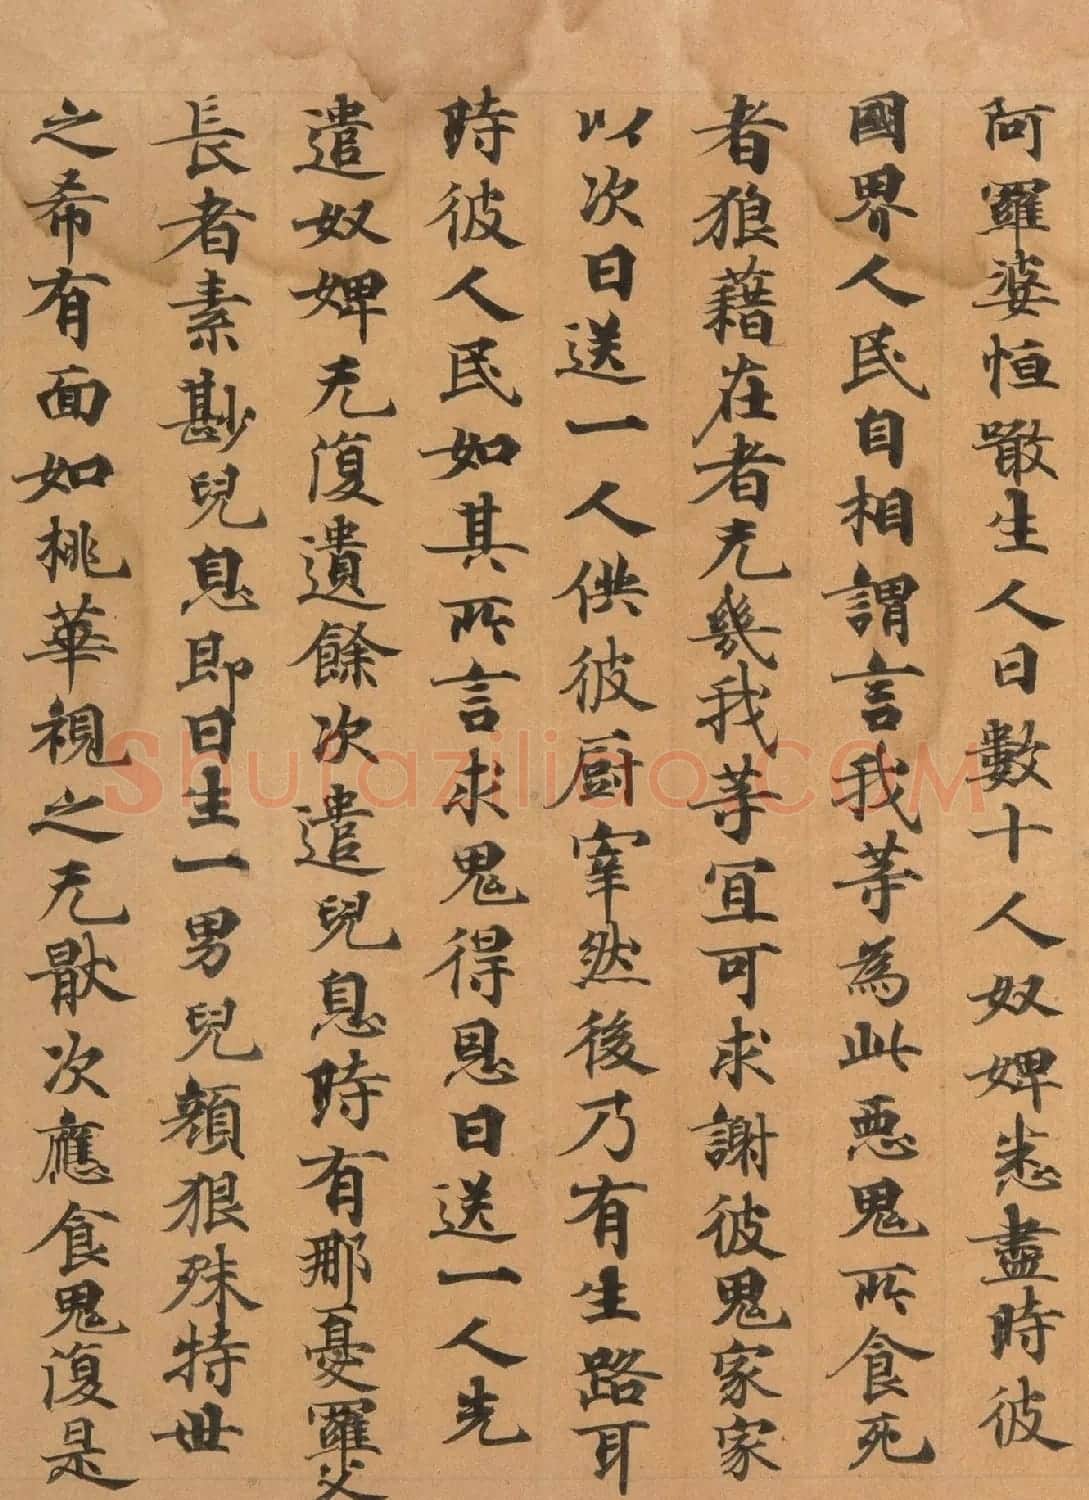 阿羅婆恒噉生人日數十人奴婢悉盡時彼
國界人民自相謂言我等為此惡鬼所食死
者狼藉在者无幾我等宜可求謝彼鬼家家
以次日送一人供彼厨宰然後乃有生路耳
時彼人民如其所言求鬼得恩日送一人先
遣奴婢无復遺餘次遣兒息時有那憂羅父
長者素尠兒息即日生一男兒顏狠殊特世
之希有面如桃華視之无猒次應食鬼復是
shufaziliao.COM